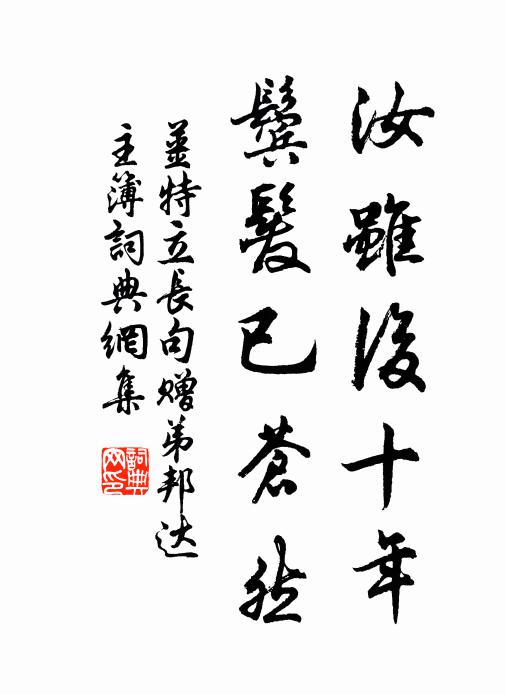 汝雖後十年
鬢髮已蒼然
薑特立長句贈弟邦达
主簿詞典網集
詞典网印